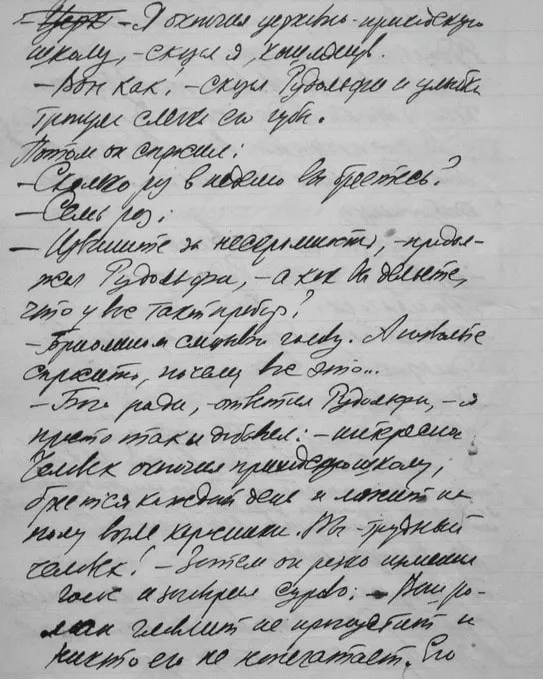 – Церк – Я окончил церковно-приходскую
школу, – сказал я, кашлянув.
– Вон как! – сказал Рудольфи и улыбка
тронула слегка его губы.
Потом он спросил:
– Сколько раз в неделю вы бреетесь?
– Семь раз;
– Извините за нескромность, – продол-
жал Рудольфи, – а как вы делаете,
что у вас такой пробор?
– Бриолином смачиваю голову. А позвольте
спросить, почему все это...
– Бога ради, – ответил Рудольфи, – я
просто так и добавил: – интересно
Человек окончил приходскую школу,
бреется каждый день и лежит на
полу возле керосинки. Вы – трудный
человек! – Затем он резко изменил
голос и заговорил сурово: – Ваш ро-
ман Главлит не пропустит и
никто его не напечатает. Его